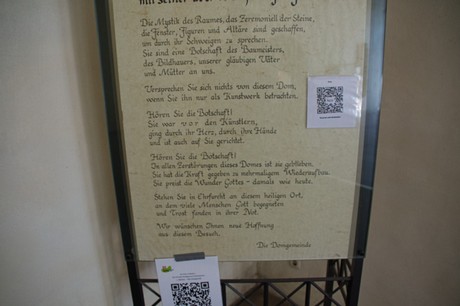 mit seiner über
Die Mystik des Raumes, das Zeremoniell der Steine,
die Fenster, Figuren und Altäre sind geschaffen,
um durch ihr Schweigen zu sprechen.
Sie sind eine Botschaft des Baumeisters,
des Bildhauers, unserer gläubigen Väter
und Mütter an uns.
Versprechen Sie sich nichts von diesem Dom,
wenn Sie ihn nur als Kunstwerk betrachten.
Hören Sie die Botschaft!
Sie war vor den Künstlern,
ging durch ihr Herz, durch ihre Hände
und ist auch auf Sie gerichtet.
Hören Sie die Botschaft!
In allen Zerstörungen dieses Domes ist sie geblieben.
Sie hat die Kraft gegeben zu mehrmaligem Wiederaufbau.
Sie preist die Wunder Gottes - damals wie heute.
Stehen Sie in Ehrfurcht an diesem heiligen Ort,
an dem viele Menschen Gott begegneten
und Trost fanden in ihrer Not.
Wir wünschen Ihnen neue Hoffnung
aus diesem Besuch.
Die Domgemeinde